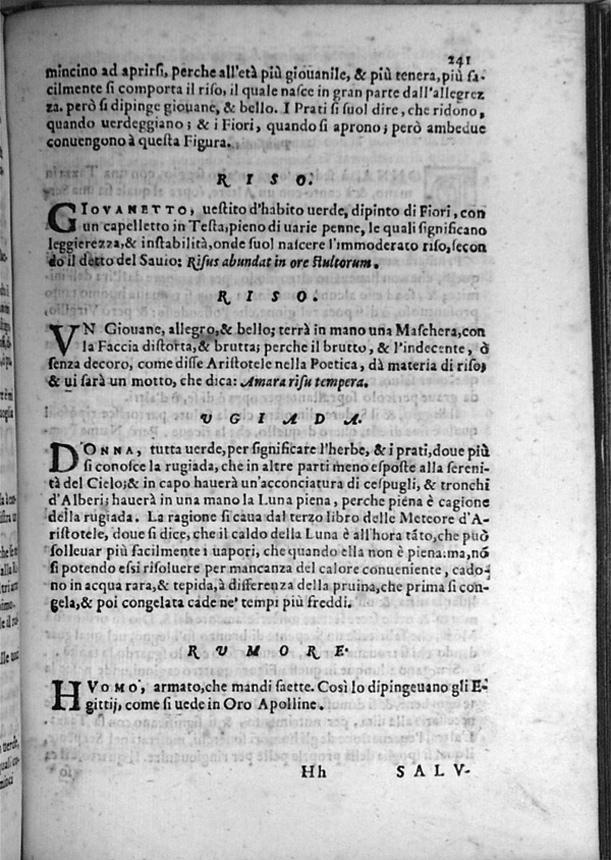 241
mincino ad aprirsi, perche all'età più giouanile, & più tenera, più fa-
cilmente si comporta il riso, il quale nasce in gran parte dall'allegrez
za. però si dipinge giouane, & bello. I Prati si suol dire, che ridono,
quando uerdeggiano; & i Fiori, quando si aprono; però ambedue
conuengono à questa Figura.
RISO.
GIOVANETTO, uestito d'habito uerde, dipinto di Fiori, con
un capelletto in Testa, pieno di uarie penne, le quali significano
leggierezza, & instabilità, onde suol nascere l'immoderato riso, secon
do il detto del Sauio: Risus abundat in ore stultorum.
RISO.
VN Giouane, allegro, & bello; terrà in mano una Maschera, con
la Faccia distorta, & brutta; perche il brutto, & l'indecente, ò
senza decoro, come disse Aristotele nella Poetica, dà materia di riso;
& ui sarà un motto, che dica: Amara risu tempera.
VGIADA.
DONNA, tutta uerde, per significare l'herbe, & i prati, doue più
si conosce la rugiada, che in altre parti meno esposte alla sereni-
tà del Cielo; & in capo hauerà un'acconciatura di cespugli, & tronchi
d'Alberi; hauerà in una mano la Luna piena, perche piena è cagione
della rugiada. La ragione si caua dal terzo libro delle Meteore d'A-
ristotele, doue si dice, che il caldo della Luna è all'hora tāto, che può
solleuar più facilmente i uapori, che quando ella non è piena: ma, nó
si potendo essi risoluere per mancanza del calore conueniente, cado-
no in acqua rara, & tepida, à differenza della pruina, che prima si con-
gela, & poi congelata cade ne' tempi più freddi.
RVMORE.
HVOMO, armato, che mandi saette. Così lo dipingeuano gli E-
gittij, come si uede in Oro Apolline.
Hh SALV-